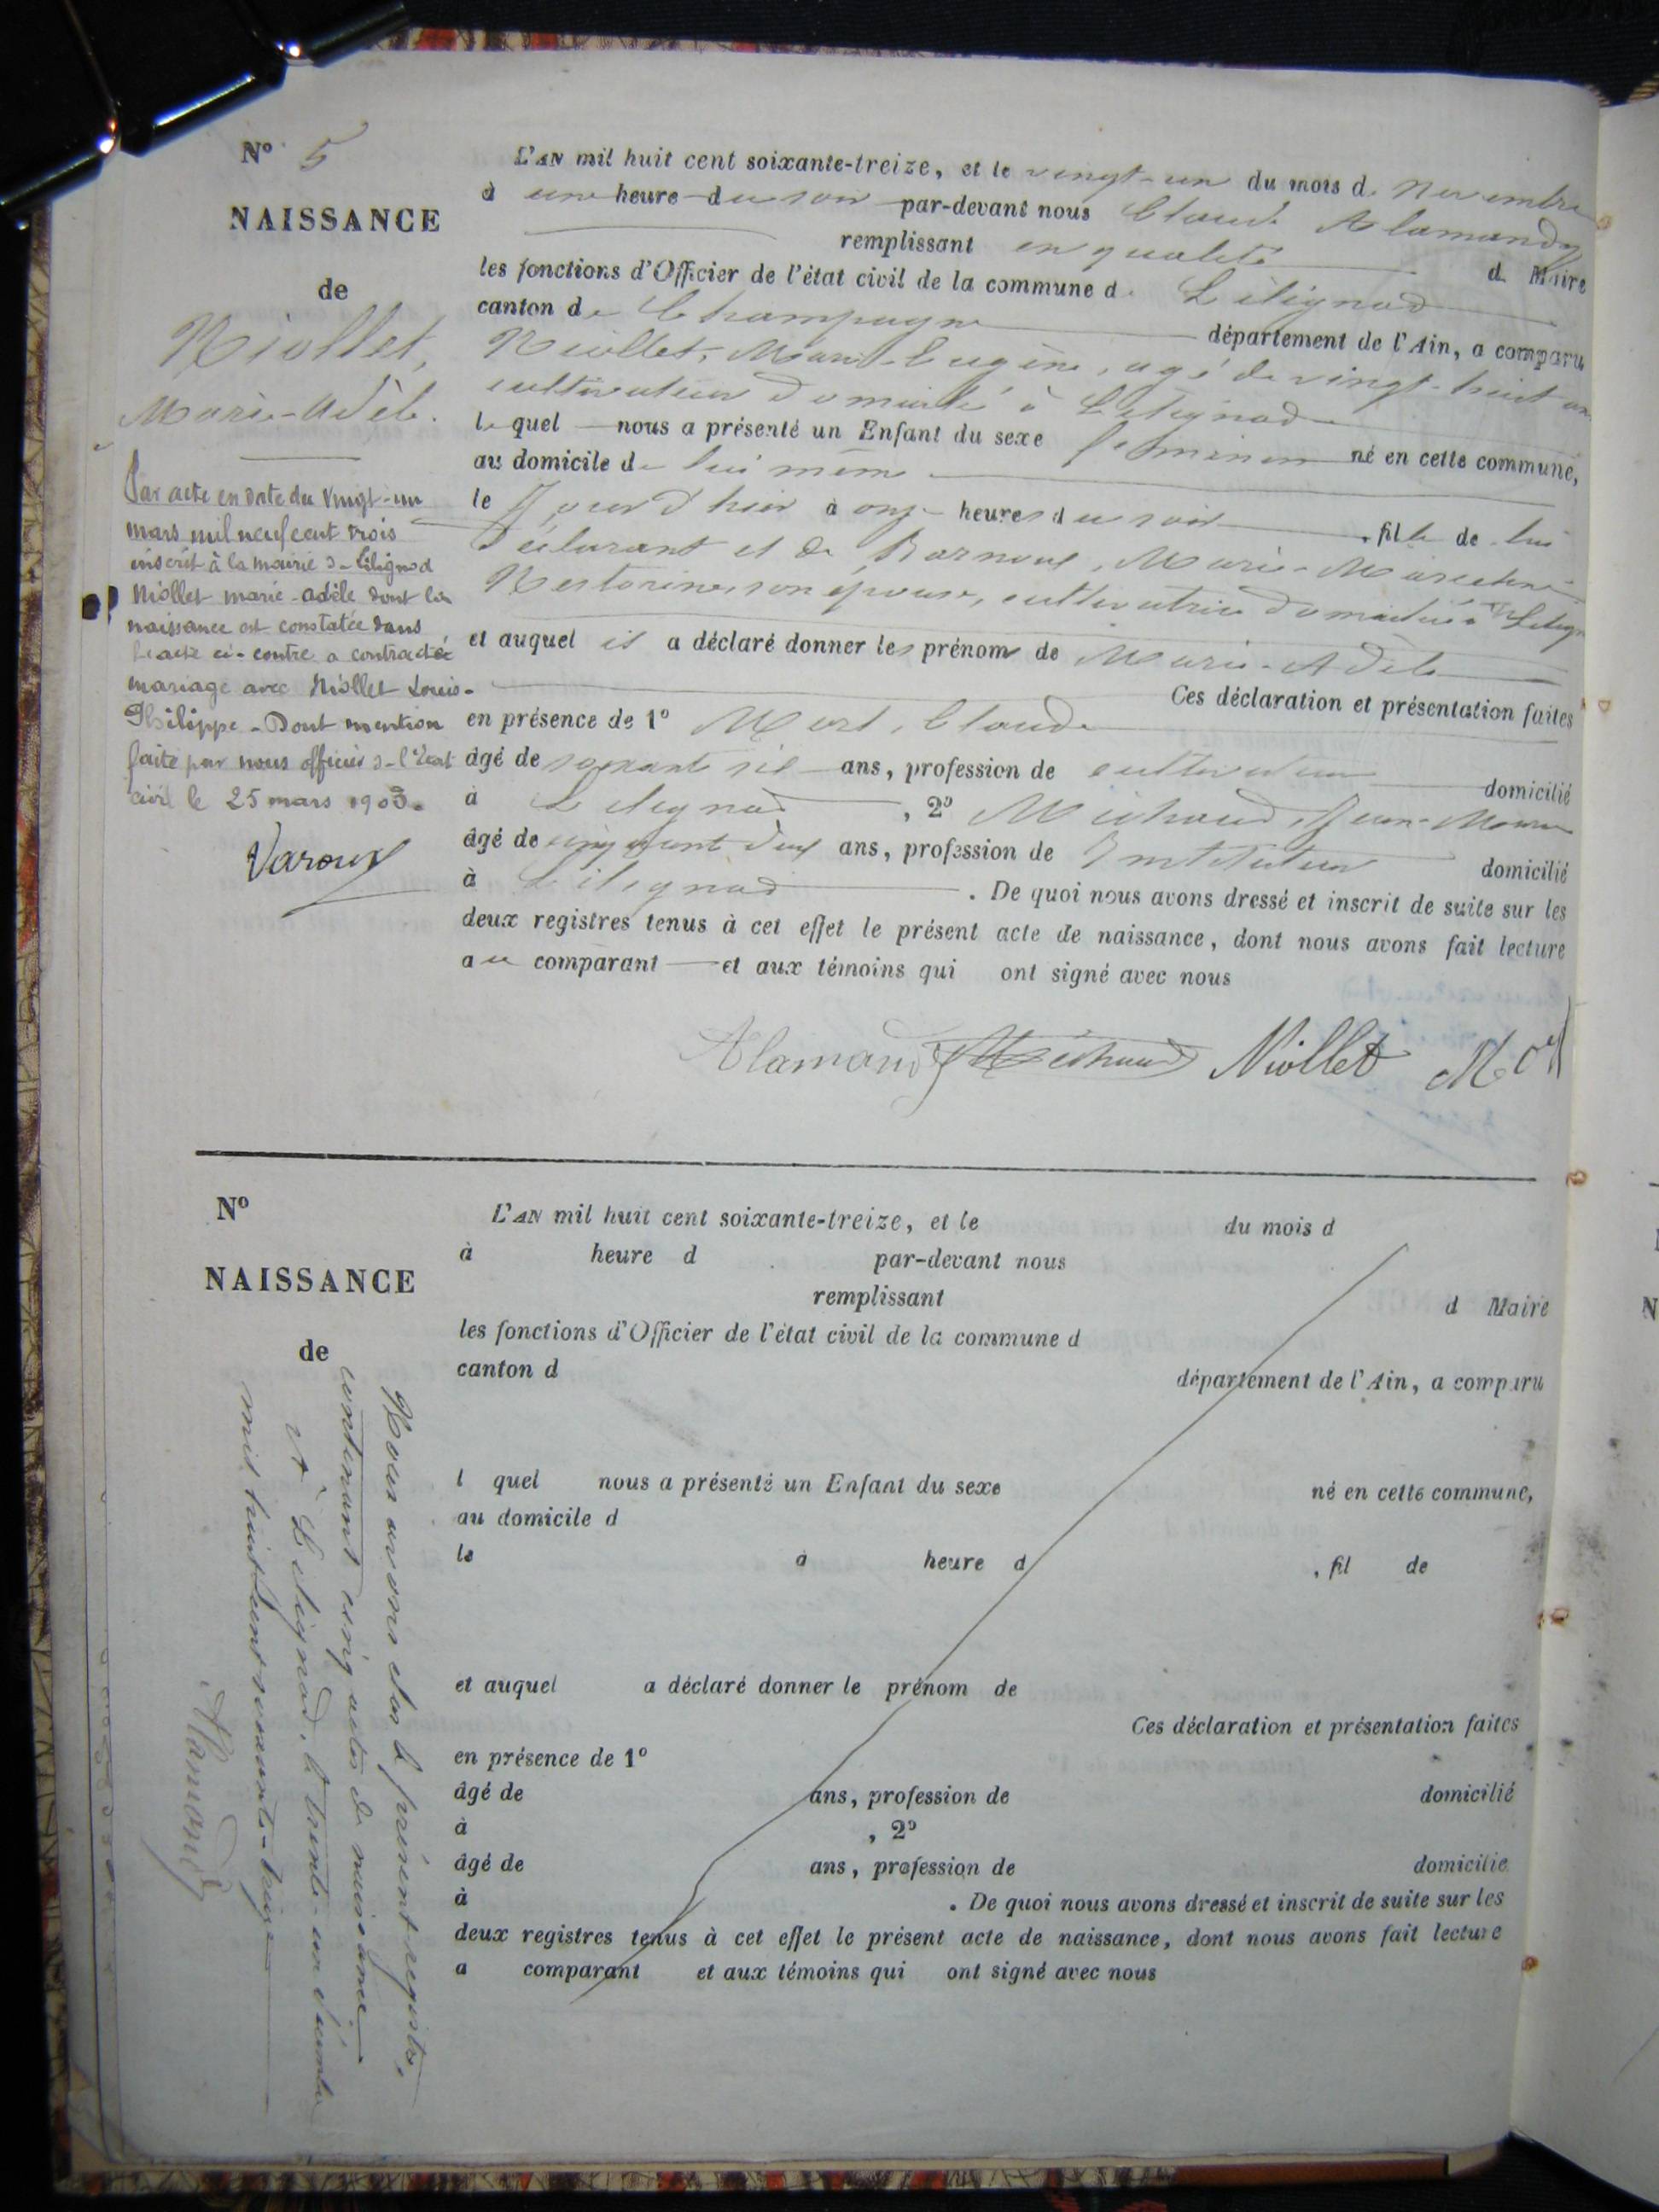 N° 5
NAISSANCE
de
Niollet,
Marie-Adèle.
Par acte en date du vingt-un
mars mil neuf cent trois
inscrit à la mairie de Lilignod
Niollet marie-adèle dont la
naissance est constatée dans
l'acte ci-contre a contracté
mariage avec Niollet Louis-
Philippe - Dont mention
faite par nous officier de l'Etat
civil le 25 mars 1903.
Varoux
L'AN mil huit cent soixante-treize, et le vingt-un du mois de Novembre
à une heure du soir par-devant nous Claude Alamandy
remplissant en qualité de Maire
les fonctions d'Officier de l'état civil de la commune de Lilignod
canton de Champagne département de l'Ain, a comparu
Niollet, Marie-Eugène, agé de vingt-huit ans
cultivateur domicilié à Lilignod
lequel nous a présenté un Enfant du sexe féminin né en cette commune,
au domicile de lui même
le Jour d'hier à onze heures du soir, fille de lui
déclarant et de Marie-
son épouse, cultivatrice domiciliée à Lilignod
et auquel il a déclaré donner les prénoms de Marie-Adèle
Ces déclaration et présentation faites
en présence de 1° Mort, Claude
âgé de soixante six ans, profession de cultivateur domicilié
à Lilignod, 2° Michaud, Jean-Marie
âgé de cinquante deux ans, profession de Instituteur domicilié
à Lilignod. De quoi nous avons dressé et inscrit de suite sur les
deux registres tenus à cet effet le présent acte de naissance, dont nous avons fait lecture
au comparant et aux témoins qui ont signé avec nous
Alamandy Michaud Niollet Mort
N°
NAISSANCE
de
L'AN mil huit cent soixante-treize, et le du mois d
à heure d par-devant nous
remplissant d Maire
les fonctions d'Officier de l'état civil de la commune d
canton d département de l'Ain, a comparu
l quel nous a présenté un Enfant du sexe né en cette commune,
au domicile d
le à heure d , fil de
et auquel a déclaré donner le prénom de
Ces déclaration et présentation faites
en présence de 1°
âgé de ans, profession de domicilié
à , 2°
âgé de ans, profession de domicilié
à . De quoi nous avons dressé et inscrit de suite sur les
deux registres tenus à cet effet le présent acte de naissance, dont nous avons fait lecture
a comparant et aux témoins qui ont signé avec nous
Nous avons clos le présent registre,
contenant cinq actes de naissance
A Lilignod, le trente-un décembre
mil huit cent soixante-treize
Alamandy